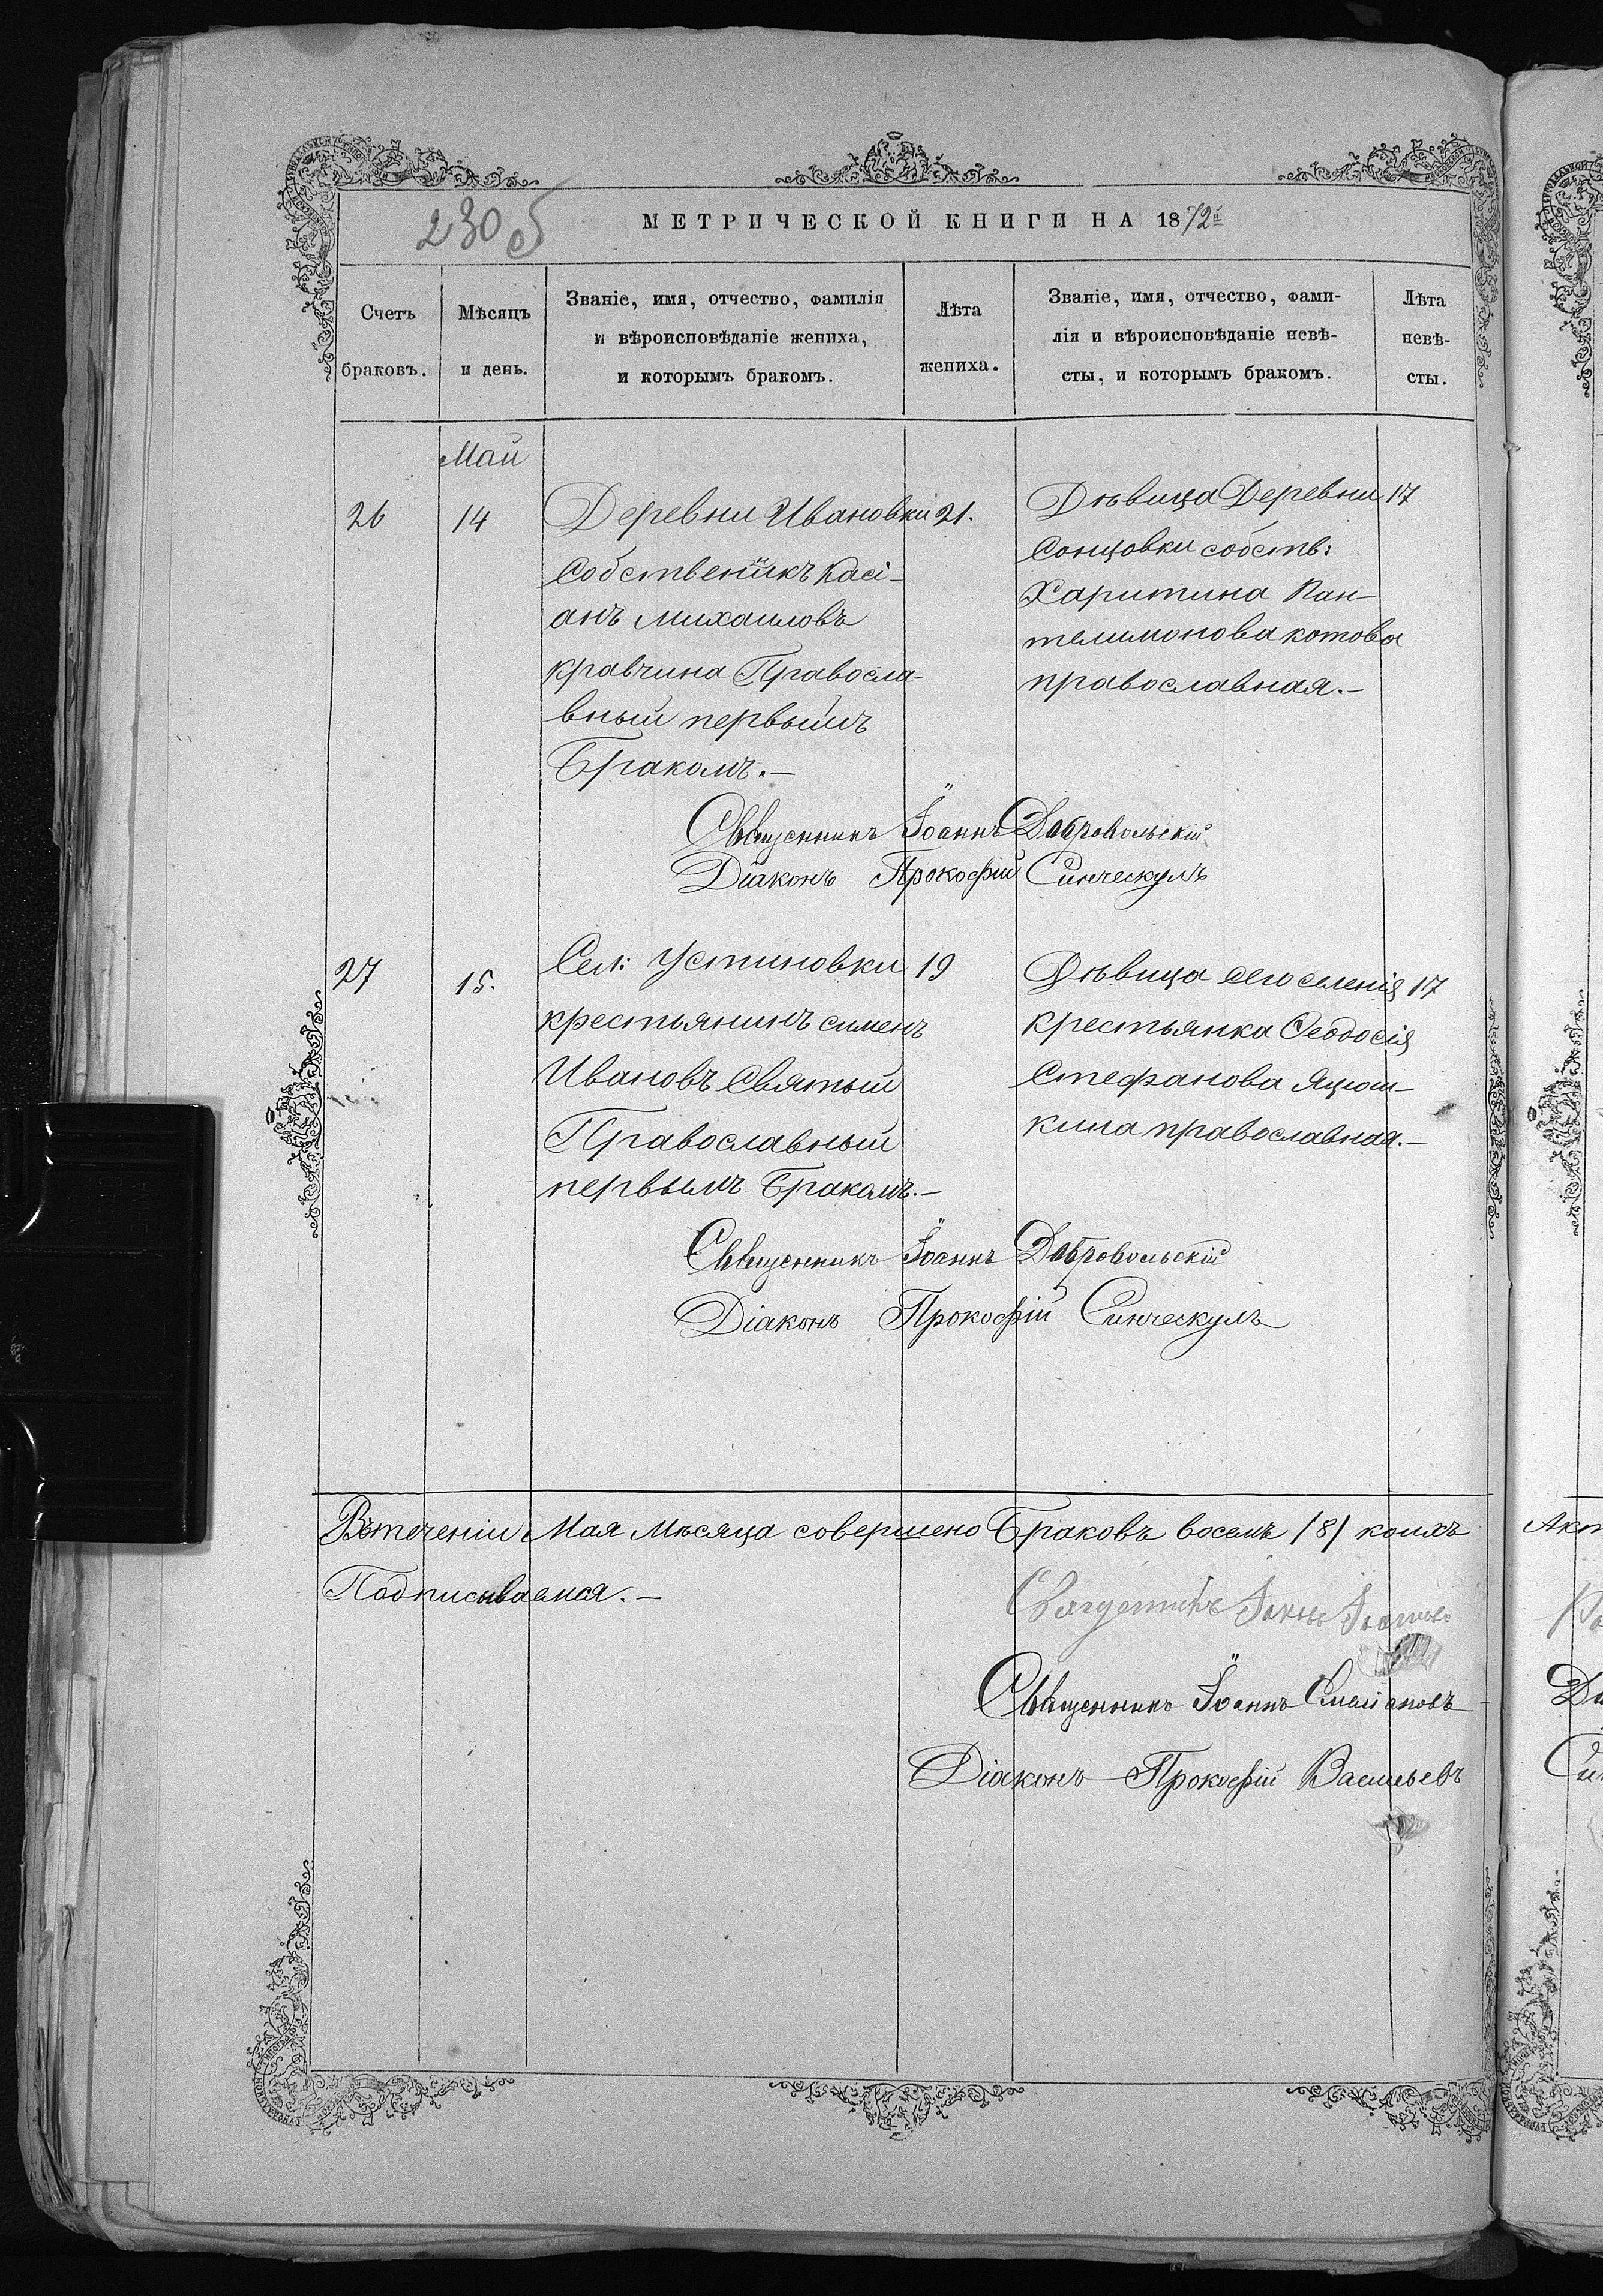 230 об
МЕТРИЧЕСКОЙ КНИГИ НА 1872й
Счетъ браковъ.
Мѣсяцъ и день.
Званіе, имя, отчество, фамилія
и вѣроисповѣданіе жениха,
и которымъ бракомъ.
Лѣта
жениха.
Званіе, имя, отчество, фами-
лія и вѣроисповѣданіе невѣ-
сты, и которымъ бракомъ.
Лѣта
невѣ-
сты.
Май
26
14
Деревни Ивановки
Собственникъ Касі-
анъ Михаиловъ
Кравчина Правосла-
вный первымъ
Бракомъ.—
21.
Дѣвица Деревни
Сонцовки собств:
Харитина Пан-
телимонова Котова
православная.—
17
Священникъ Іоаннъ Добровольскій
Діаконъ Прокофій Синческулъ
27
15.
Сел: Устиновки
крестьянинъ Сименъ
Ивановъ Святый
Православный
первымъ Бракомъ.—
19
Дѣвица сего селенія
крестьянка Ѳеодосія
Стефанова Яцюш-
кина православная.—
17
Священникъ Іоаннъ Добровольскій
Діаконъ Прокофій Синческулъ
Втеченіи Мая Мѣсяца совершено Браковъ восемь /8/ коихъ
Подписываемся.—
Священникъ Іоаннъ
Священникъ Іоаннъ
Діаконъ Прокофій Васильевъ
Акт